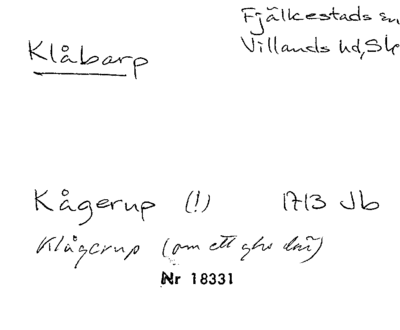 Klåbarp
Fjälkestads sn
Villands hd, Sk
Kågerup (!) 1713 Jb
Klågerup (om ett gho där)
Nr 18331